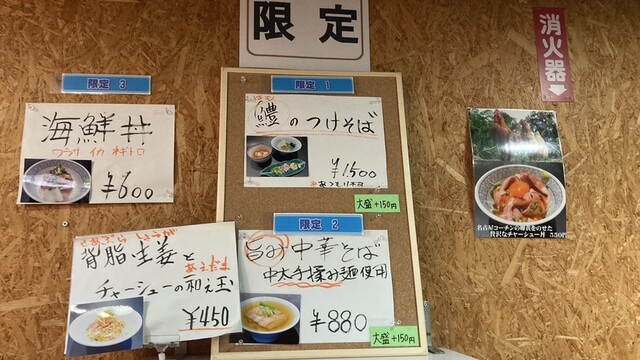 限定
消火器
限定 3
海鮮丼
ワラサ イカ ネギトロ
¥600
限定 1
はも
鱧のつけそば
¥1500
大盛+150円
限定 2
旨み中華そば
中太手揉み麺使用
¥880
大盛+150円
せあぶら しょうが
背脂生姜と
あえだま
チャーシューの和え玉
¥450
名古屋コーチンの卵黄をのせた
贅沢なチャーシュー丼 550円